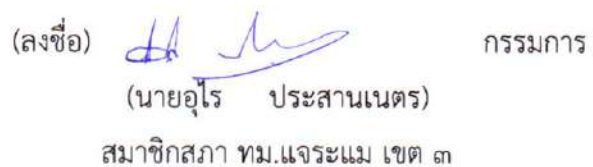 (ลงชื่อ) กรรมการ
(นายอุไร ประสานเนตร)
สมาชิกสภา ทม.แจระแม เขต ๓